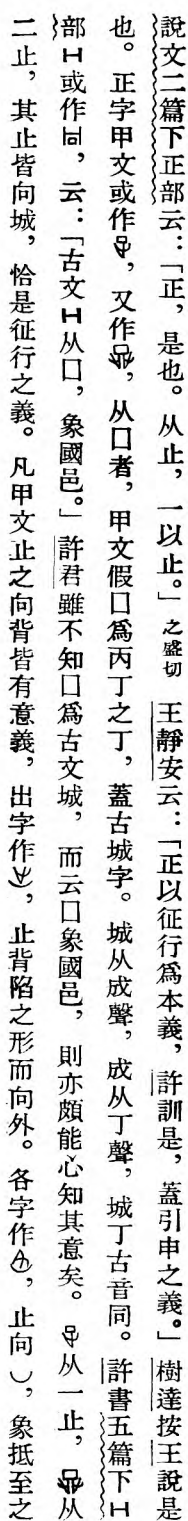 說文二篇下正部云：「正，是也。从止，一以止。」之盛切　王靜安云：「正以征行爲本義，許訓是，蓋引申之義。」樹達按王說是
也。正字甲文或作，又作，从口者，甲文假口爲丙丁之丁，蓋古城字。城从成聲，成从丁聲，城丁古音同。許書五篇下冂
部冂或作冋，云：「古文冂从口，象國邑。」許君雖不知口爲古文城，而云口象國邑，則亦頗能心知其意矣。从一止，从
二止，其止皆向城，恰是征行之義。凡甲文止之向背皆有意義，出字作，止背陷之形而向外。各字作，止向，象抵至之